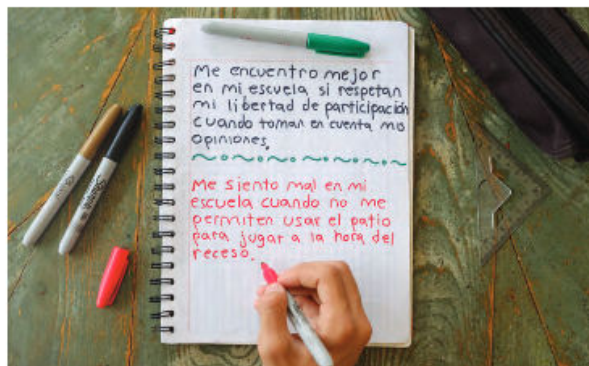 Me encuentro mejor
en mi escuela si respetan
mi libertad de participación
cuando toman en cuenta mis
opiniones.
Me siento mal en mi
escuela cuando no me
permiten usar el patio
para jugar a la hora del
receso.